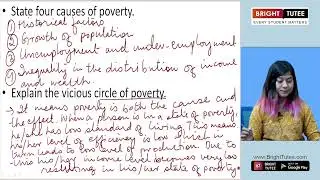 BRIGHT TUTEE
EVERY STUDENT MATTERS
• State four causes of poverty.
① Historical factors
② Growth of population
③ Unemployment and under-employment
④ Inequality in the distribution of income
and wealth.
• Explain the vicious circle of poverty.
→ It means poverty is both the cause and
the effect. When a person is in a state of poverty,
he/she has low standard of living. This means
his/her level of efficiency is low which in
turn leads to low level of production. Due to
this his/her income level becomes very low
resulting in his/her state of poverty
www.BrightTutee.com